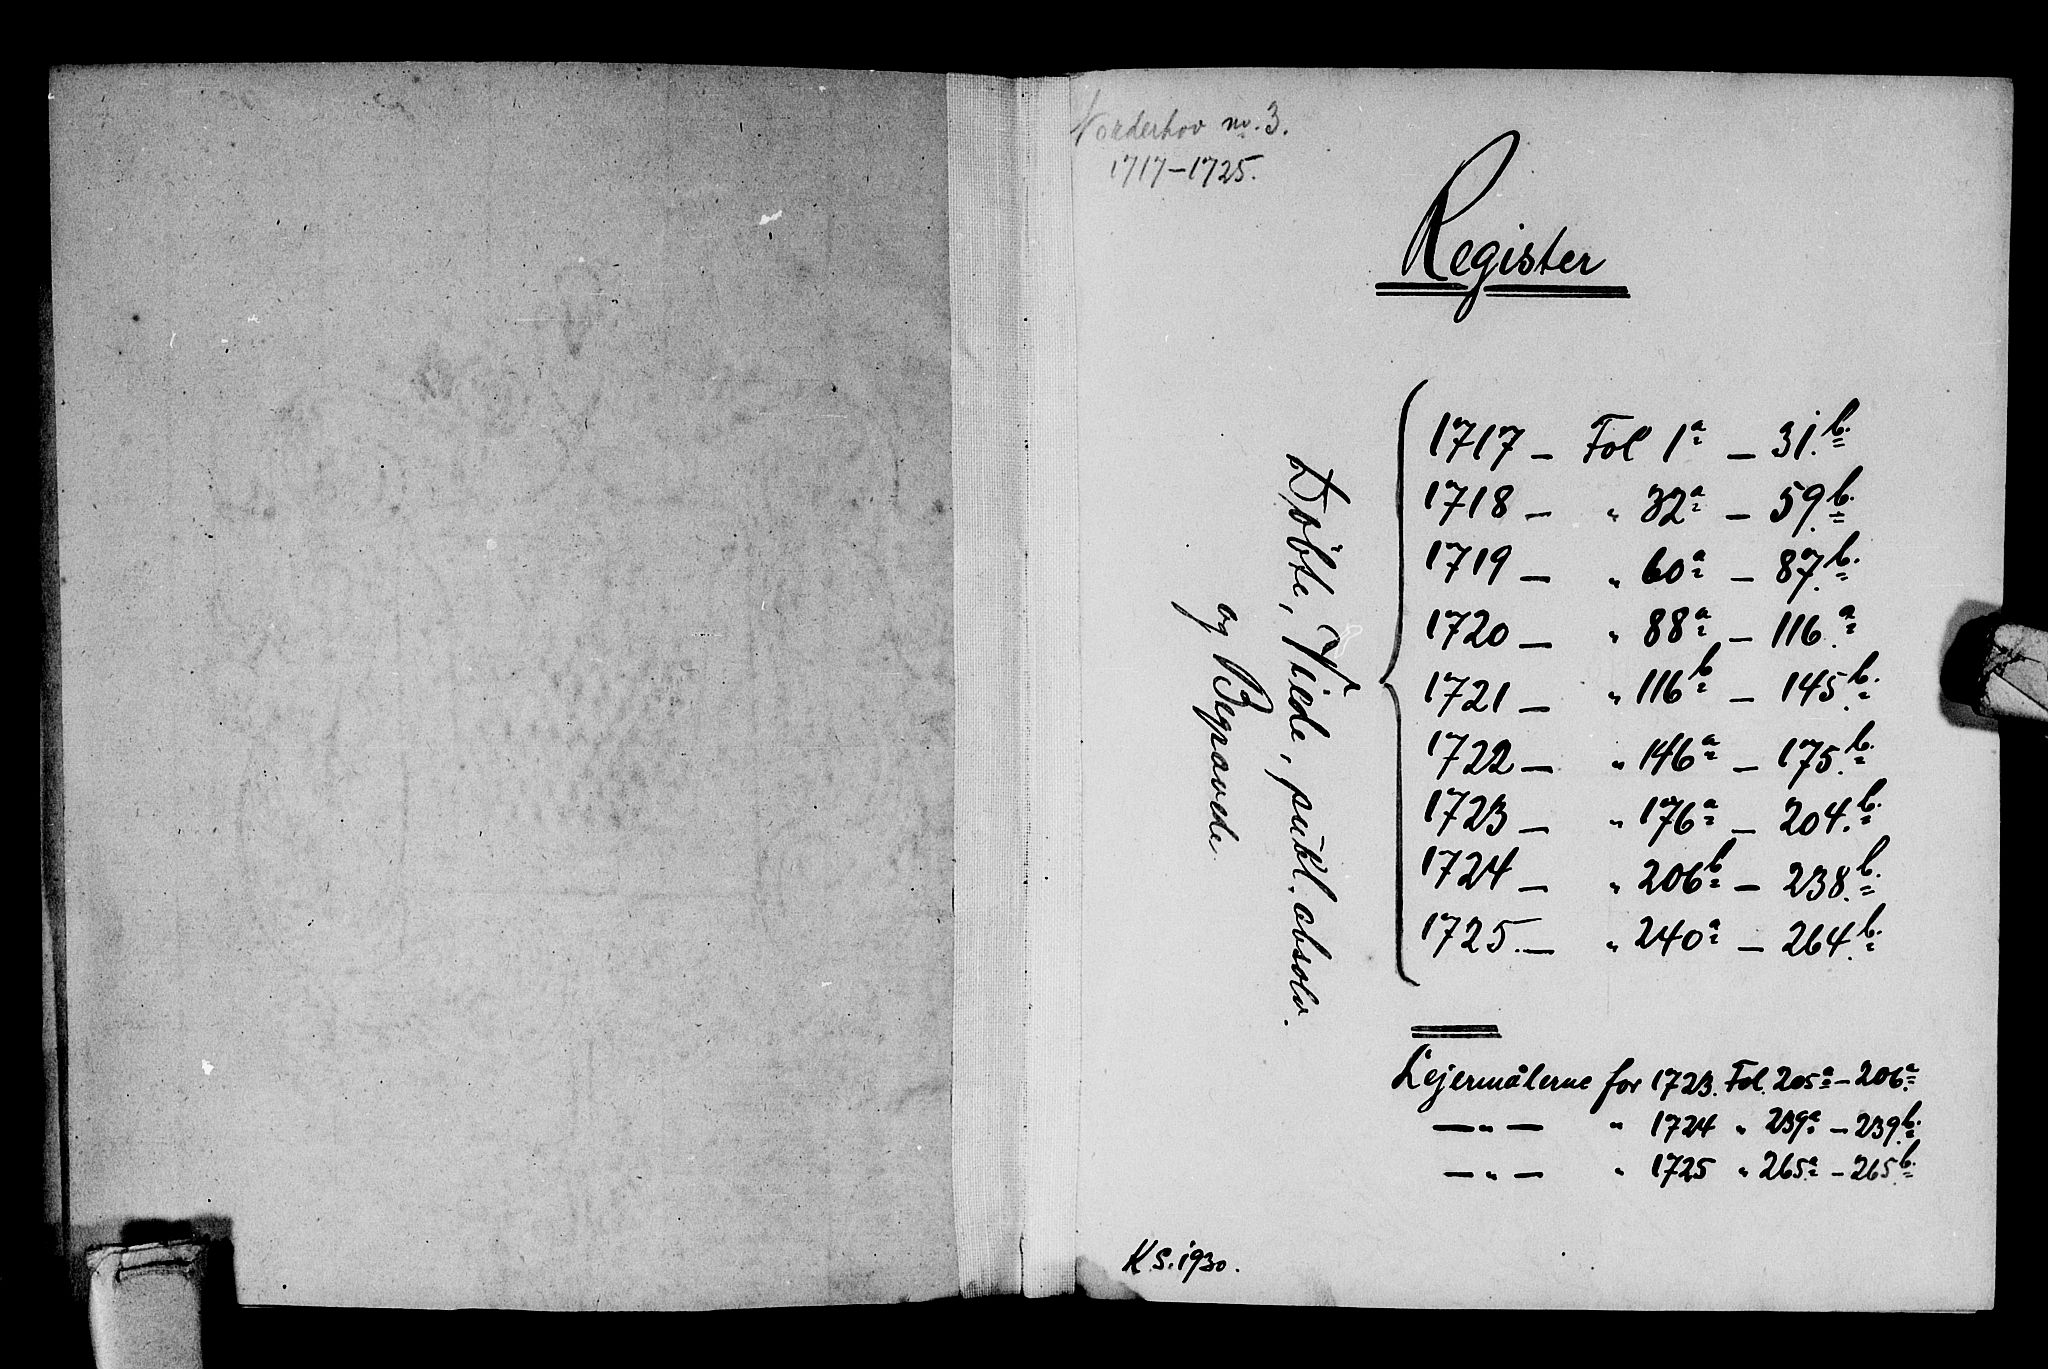 Norderhov no. 3.
1717-1725.
Register
Döbte, Viede, publ. absolv.
og Begravede
1717 – Fol 1ª – 31.b.
1718 – " 32ª – 59.b.
1719 – " 60ª – 87.b.
1720 – " 88ª – 116.ª
1721 – " 116b – 145.b.
1722 – " 146ª – 175.b.
1723 – " 176ª – 204.b.
1724 – " 206b – 238.b.
1725. – " 240ª – 264.b.
Lejermålerne for 1723. Fol. 205ª – 206.ª
— " — " 1724 " 239ª – 239.b.
— " — " 1725 " 265ª – 265.b.
K S. 1930.